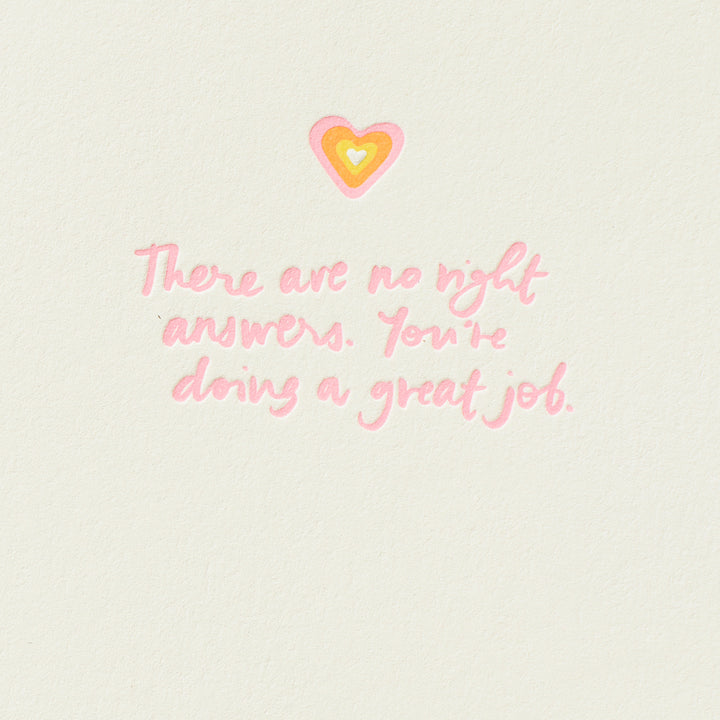 There are no right
answers. You're
doing a great job.